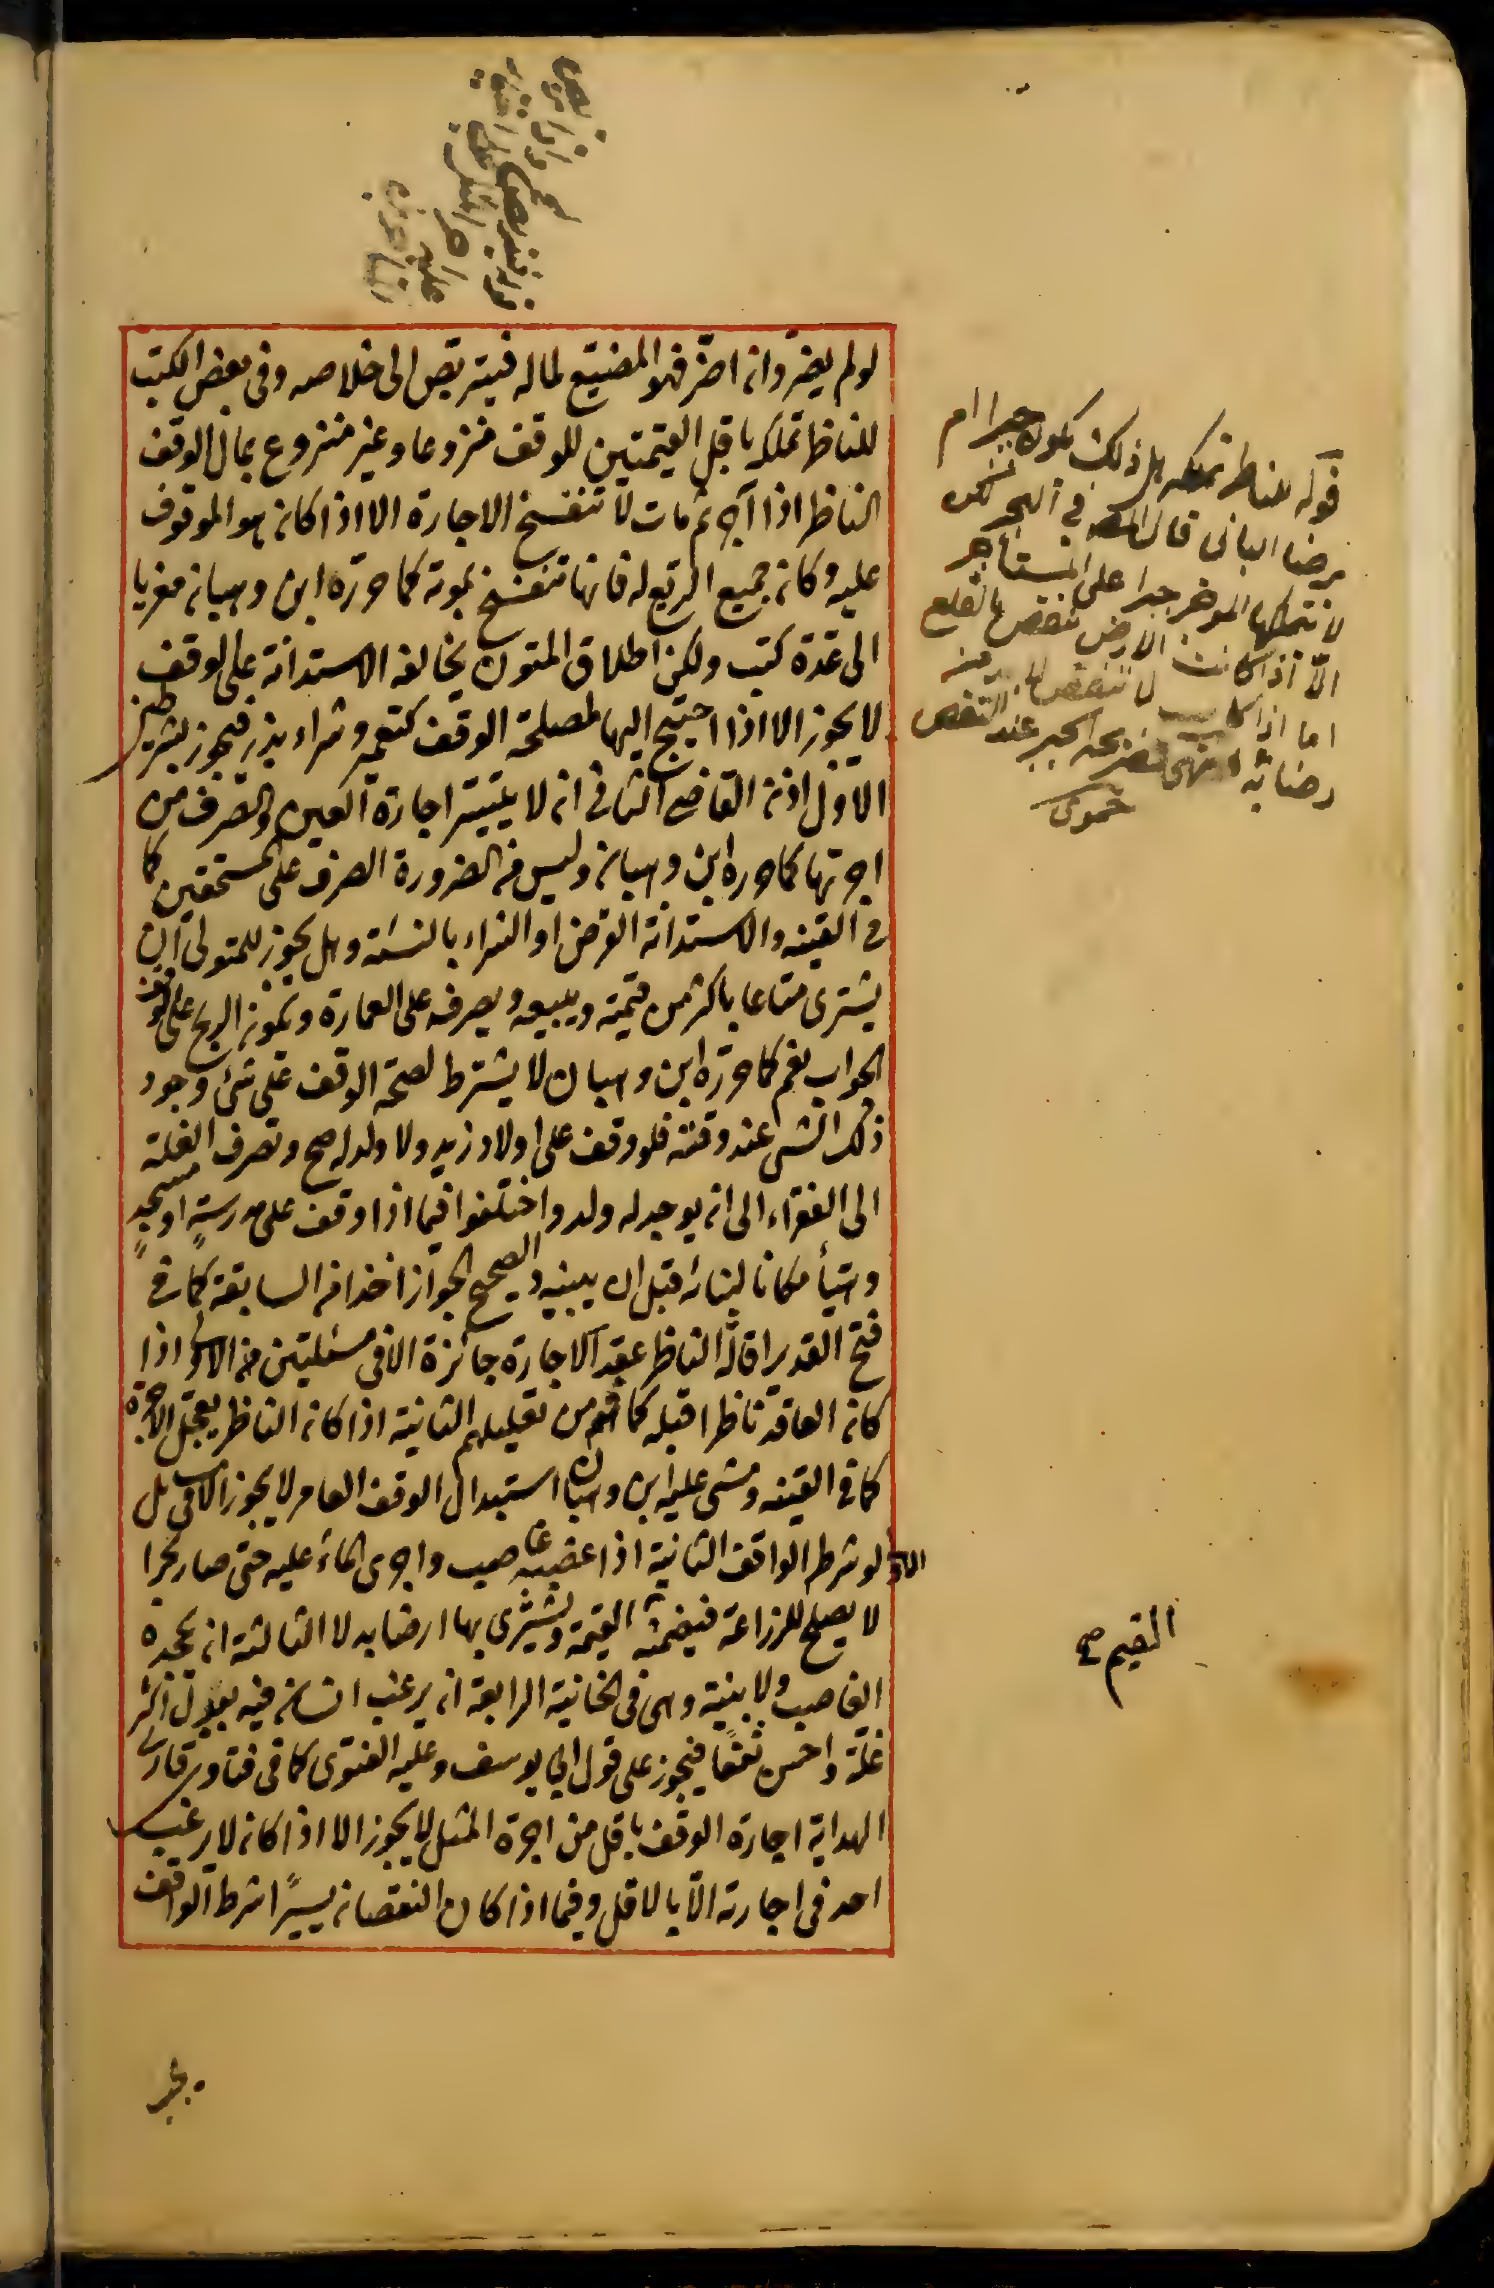 لو لم يضر وان اضر فهو المضيع لماله فيتربص الى خلاصه وفى بعض الكتب
للناظر تملكه باقل القيمتين للوقف منزوعا وغير منزوع بمال الوقف
الناظر اذا آجر ثم مات لا تنفسخ الاجارة الا اذا كان هو الموقوف
عليه وكان جميع الريع له فانها تنفسخ بموته كما حرره ابن وهبان معزيا
الى عدة كتب ولكن اطلاق المتون يخالفه الاستدانة على الوقف
لا يجوز الا اذا احتيج اليها لمصلحة الوقف كتعمير وشراء بذر فيجوز بشرطين
الاول اذن القاضى الثانى ان لا يتيسر اجارة العين والصرف من
اجرتها كما حرره ابن وهبان وليس من الضرورة الصرف على المستحقين كما
فى القنيه والاستدانة القرض او الشراء بالنسئة وهل يجوز للمتولى ان
يشترى متاعا باكثر من قيمته ويبيعه ويصرفه على العمارة ويكون الربح على الوقف
الجواب نعم كما حرره ابن وهبان لا يشترط لصحة الوقف على شئ وجود
ذلك الشئ عند وقفه فلو وقف على اولاد زيد ولا ولد له صح وتصرف الغلة
الى الفقراء الى ان يوجد له ولد واختلفوا فيما اذا وقف على مدرسةٍ او مسجدٍ
وهيأ مكانا لبنائه قبل ان يبنيه والصحيح الجواز اخذا من السابقة كما فى
فتح القدير اقالة الناظر عقد الاجارة جائزة الا فى مسئلتين الاولى اذا
كان العاقد ناظرا قبله كما فهم من تعليلهم الثانية اذا كان الناظر يعجل الاجرة
كما فى القنيه ومشى عليه ابن وهبان استبدال الوقف العامر لا يجوز الا فى مسائل
الاولى لو شرط الواقف الثانية اذا غصبه غاصب واجرى الماء عليه حتى صار بحرا
لا يصلح للزراعة فيضمنه القيمة ويشترى بها ارضا بدلا الثالثة ان يجحده
الغاصب ولا بينة وهى فى الخانية الرابعة ان يرغب انسان فيه ببدل اكثر
غلة واحسن نفعا فيجوز على قول ابى يوسف وعليه الفتوى كما فى فتاوى قارى
الهداية اجارة الوقف باقل من اجرة المثل لا يجوز الا اذا كان لا يرغب
احد فى اجارته الا بالاقل وفيما اذا كان النقصان يسيرًا شرط الواقف
قوله للناظر تملكه هل ذلك يكون جبرا ام
برضا البانى قال المصـ فى البحر لكن
لا يتملكها الموجر جبرا على المستأجر
الا اذا كانت الارض تنقص بالقلع
اما اذا كانت لا تنقص لا بد من
رضائه انتهى الجبر عند النقص
حموى
القيم صح